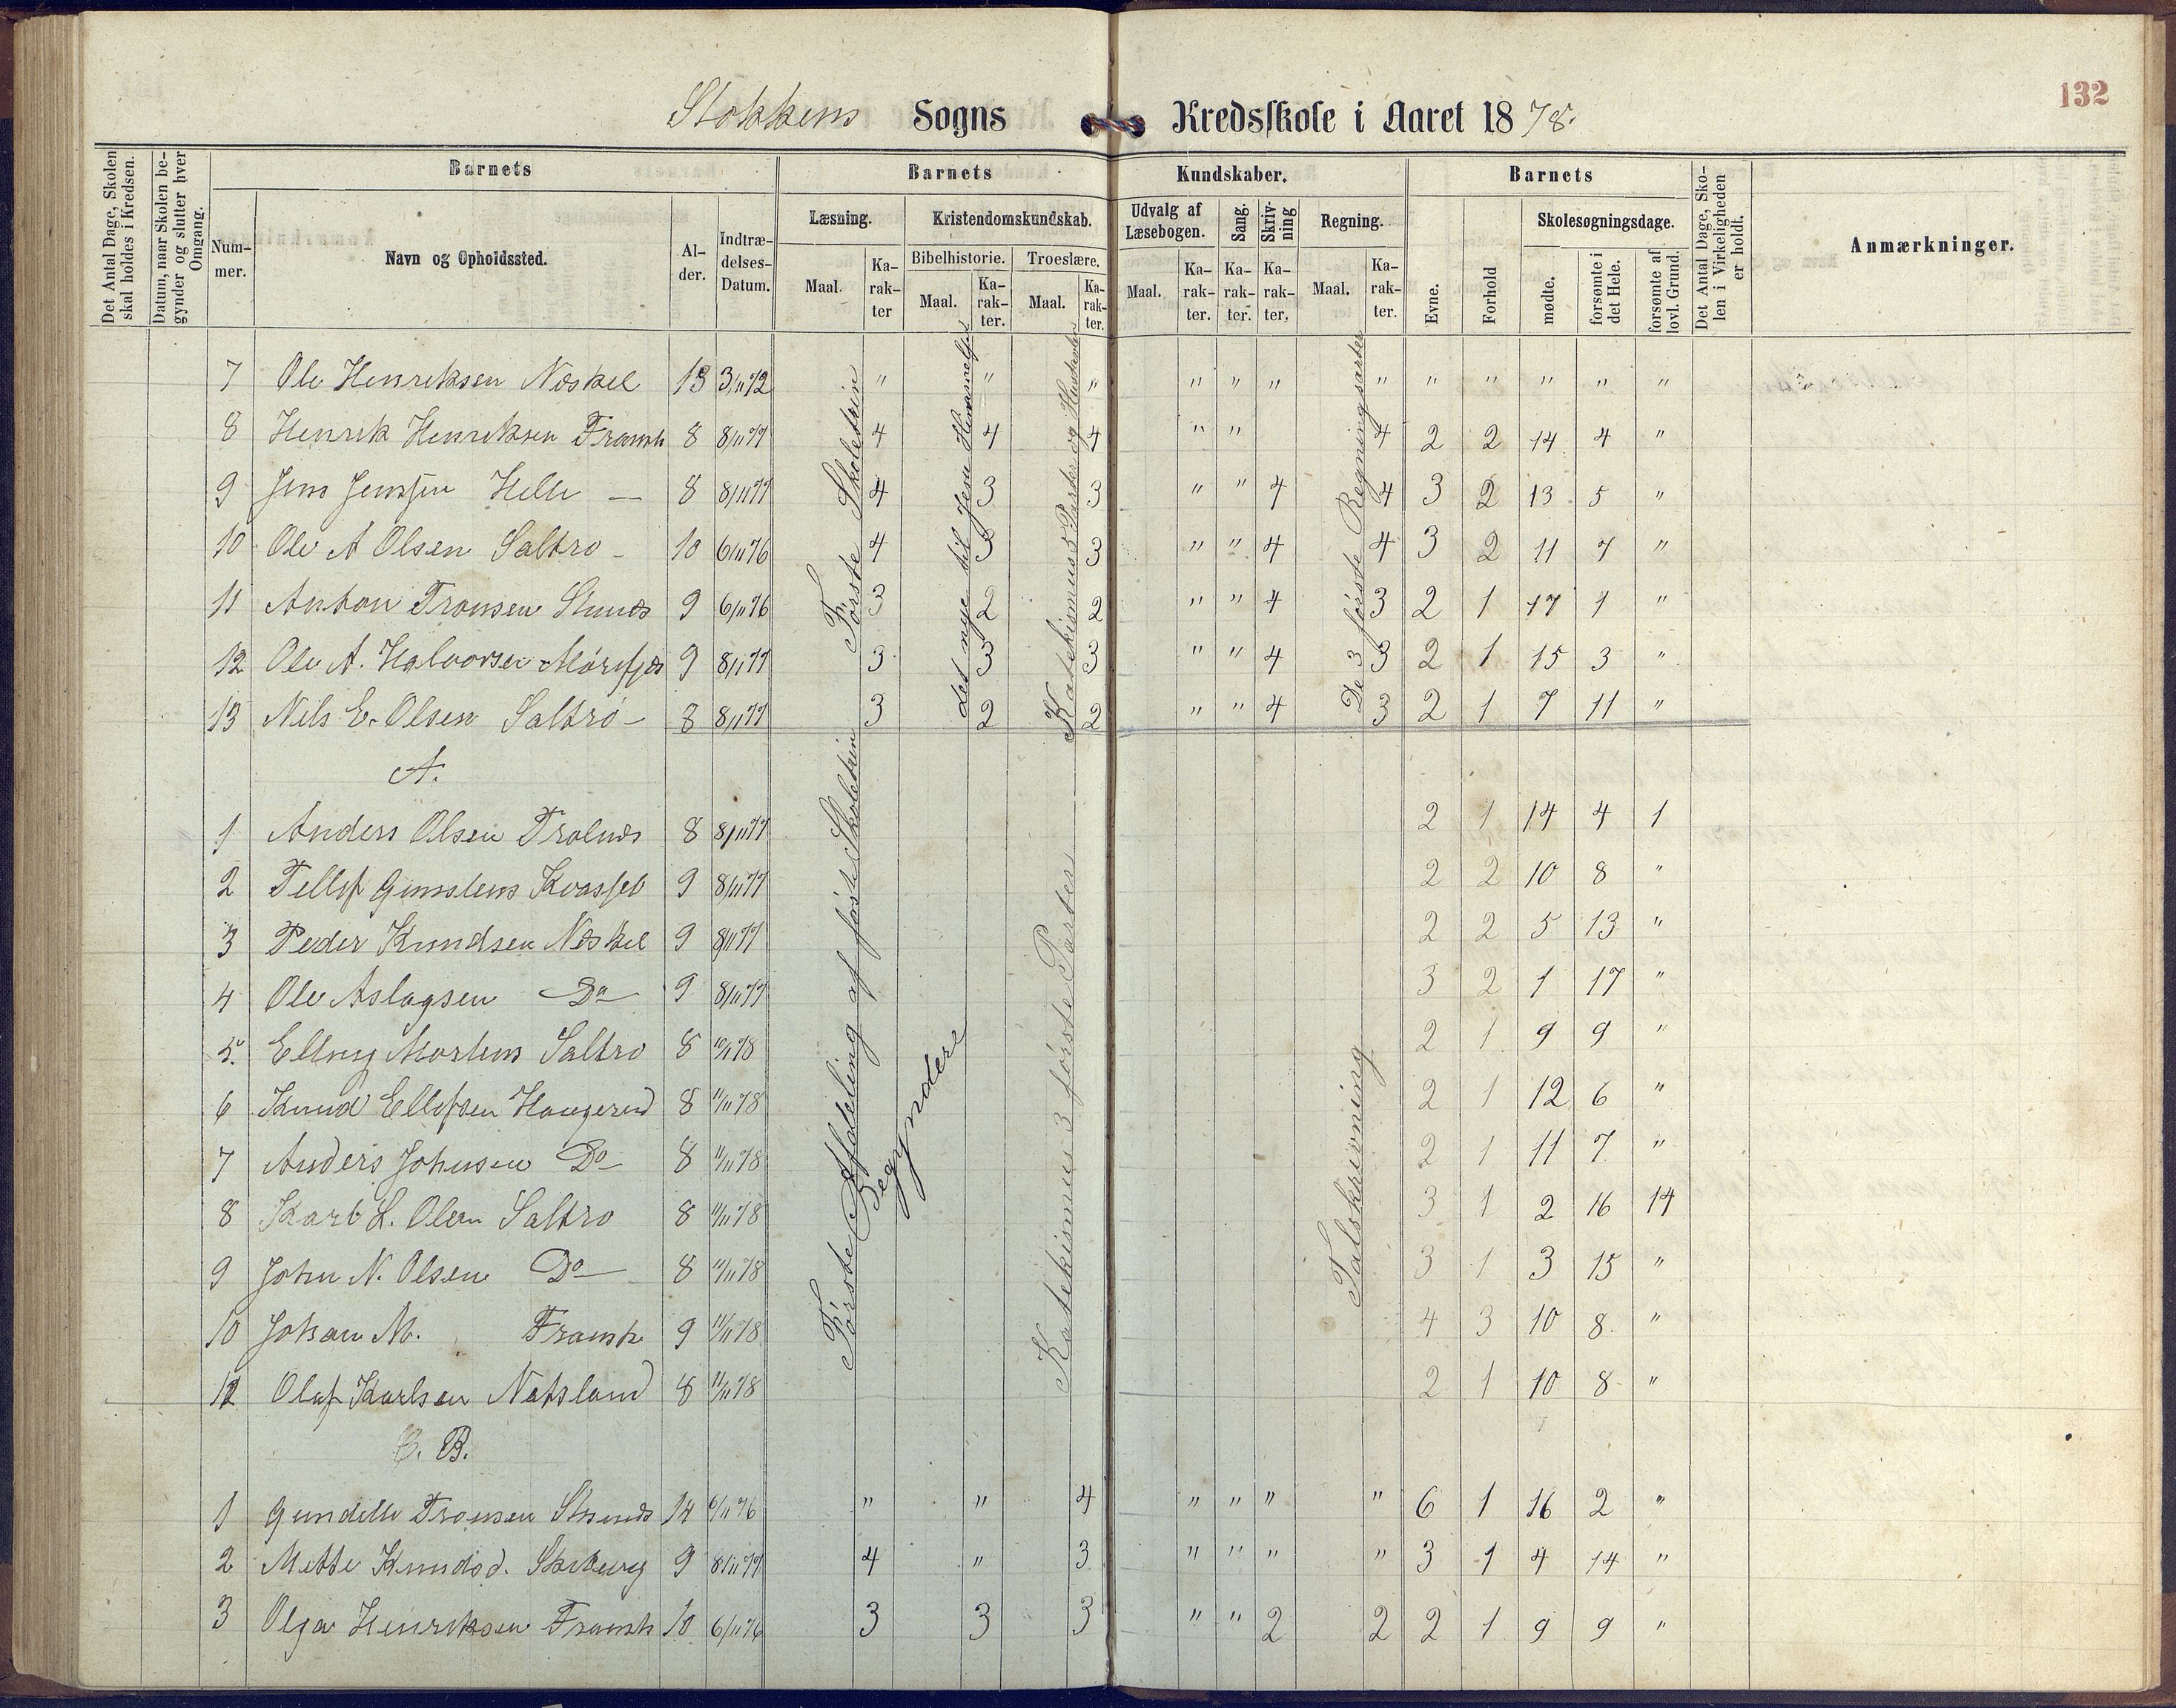 132
Stokkens Sogns Kredsskole i Aaret 1878.
Det Antal Dage, Skolen skal holdes i Kredsen.
Datum, naar Skolen begynder og slutter hver Omgang.
Barnets
Nummer.
Navn og Opholdssted.
Alder.
Indtrædelses-Datum.
Barnets Kundskaber.
Læsning.
Maal.
Karakter
Kristendomskundskab.
Bibelhistorie.
Maal.
Karakter.
Troeslære.
Maal.
Karakter.
Udvalg af Læsebogen.
Maal.
Karakter.
Sang.
Karakter.
Skrivning
Karakter.
Regning.
Maal.
Karakter.
Barnets
Evne.
Forhold
Skolesøgningsdage.
mødte.
forsømte i det Hele.
forsømte af lovl. Grund.
Det Antal Dage, Skolen i Virkeligheden er holdt.
Anmærkninger.
Første Skoletrin
det nye til Jesu Himmelf
Katekismus 5 Parter og Hustavlen
De 3 første Regningsarter
7 Ole Henriksen Næskil 13 3/11 72 " " " " " " " " " " " "
8 Henrik Henriksen Framsh 8 8/11 77 4 4 4 " " 4 2 2 14 4 "
9 Jens Jenssen Helle — 8 8/11 77 4 3 3 " " 4 4 3 2 13 5 "
10 Ole A Olsen Saltrø - 10 6/11 76 4 3 3 " " 4 4 3 2 11 7 "
11 Anton Tronsen 9 6/11 76 3 2 2 " " 4 3 2 1 17 1 "
12 Ole A. Halvorsen Mørefjær 9 8/11 77 3 3 3 " " 4 3 2 1 15 3 "
13 Nils E. Olsen Saltrø - 8 8/11 77 3 2 2 " " 4 3 2 1 7 11 "
A.
Første Afdeling af første Skoletrin
Begyndere
Katekismus 3 første Parter
Talskrivning
1 Anders Olsen Trolnæs 8 8/11 77 2 1 14 4 1
2 Tellef Kvassel 9 8/11 77 2 2 10 8 "
3 Peder Knudsen Næskil 9 8/11 77 2 2 5 13 "
4 Ole Aslagsen Do 9 8/11 77 3 2 1 17 "
5. Elling Mortens Saltrø 8 /11 78 2 1 9 9 "
6 Knud Ellefsen Haugerød 8 11/11 78 2 1 12 6 "
7 Anders Johnsen Do 8 11/11 78 2 1 11 7 "
8 Karl L. Olsen Saltrø 8 11/11 78 3 1 2 16 14
9 John N. Olsen Do 8 11/11 78 3 1 3 15 "
10 Johan M. Framsh 9 11/11 78 4 3 10 8 "
12 Olaf Karlsen Natsland 8 11/11 78 2 1 10 8 "
C. B.
1 Gundelle Tronsen 14 6/11 76 " " 4 " " " " 6 1 16 2 "
2 Mette Knudsd. Skiberg 9 8/11 77 4 " 3 " " " " 3 1 4 14 "
3 Olga Henriksen Framsh 10 6/11 76 3 3 3 " " 2 2 2 1 9 9 "